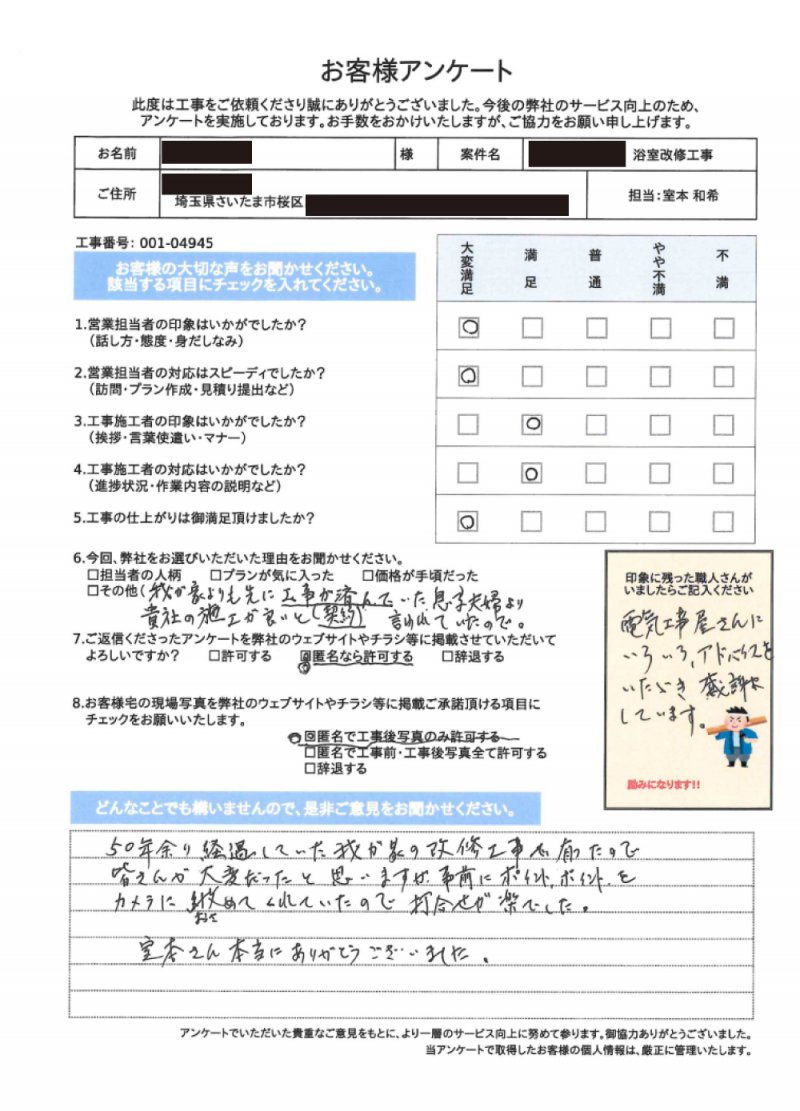 お客様アンケート
此度は工事をご依頼くださり誠にありがとうございました。今後の弊社のサービス向上のため、
アンケートを実施しております。お手数をおかけいたしますが、ご協力をお願い申し上げます。
お名前 様 案件名 浴室改修工事
ご住所 埼玉県さいたま市桜区 担当:室本 和希
工事番号: 001-04945
お客様の大切な声をお聞かせください。
該当する項目にチェックを入れてください。
大変満足 満足 普通 やや不満 不満
1.営業担当者の印象はいかがでしたか?
(話し方・態度・身だしなみ)
2.営業担当者の対応はスピーディでしたか?
(訪問・プラン作成・見積り提出など)
3.工事施工者の印象はいかがでしたか?
(挨拶・言葉使遣い・マナー)
4.工事施工者の対応はいかがでしたか?
(進捗状況・作業内容の説明など)
5.工事の仕上がりは御満足頂けましたか?
6.今回、弊社をお選びいただいた理由をお聞かせください。
□担当者の人柄 □プランが気に入った □価格が手頃だった
□その他(我が家よりも先に工事が済んでいた息子夫婦より
貴社の施工が良いと(契約)言われていたので。
7.ご返信くださったアンケートを弊社のウェブサイトやチラシ等に掲載させていただいて
よろしいですか? □許可する □匿名なら許可する □辞退する
8.お客様宅の現場写真を弊社のウェブサイトやチラシ等に掲載ご承諾頂ける項目に
チェックをお願いいたします。
□匿名で工事後写真のみ許可する
□匿名で工事前・工事後写真全て許可する
□辞退する
印象に残った職人さんが
いましたらご記入ください
電気工事屋さんに
いろいろ、アドバイスを
いただき 感謝
しています。
励みになります!!
どんなことでも構いませんので、是非ご意見をお聞かせください。
50年余り経過していた我が家の改修工事も有ったので
皆さんが大変だったと思いますが事前にポイント、ポイントを
カメラに納めてくれていたので打合せが楽でした。
おさ
室本さん本当にありがとうございました。
アンケートでいただいた貴重なご意見をもとに、より一層のサービス向上に努めて参ります。御協力ありがとうございました。
当アンケートで取得したお客様の個人情報は、厳正に管理いたします。